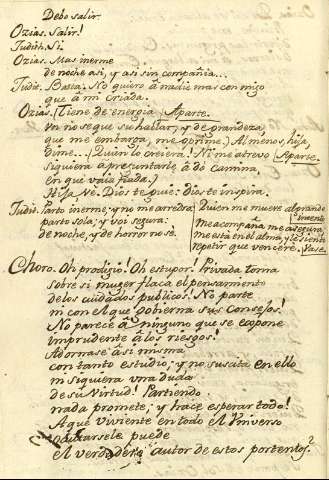 Debo salir.
Ozias. Salir!
Judith. Si.
Ozias. Mas inerme
de noche asi, y asi sin compañia...
Judit. Basta. No quiero á nadie mas conmigo
que á mi criada.
Ozias. (Tiene de energia Aparte.
un no se que su hablar, y de grandeza,
que me embarga, me oprime.) Al menos, hija,
dime... (Quien lo creiera! Ni me atrevo Aparte.
siquiera á preguntarle á dó camina,
en que vaia fiada.)
Hija, vé. Dios te guie: dios te inspira.
Judit. Parto inerme; y no me arredra:
parto sola; y voi segura:
de noche, y de horror no sé.
Quien me mueve al grande
intento
me acompaña me asegura
me está en el alma, y le siento
repetir que venceré. Vase.
Choro. Oh prodigio! Oh estupor! Privada toma
sobre si muger flaca el pensamiento
de los cuidados publicos! No parte
ni con el que gobierna sus consejos!
No parece á ninguno que se expone
imprudente á los riesgos!
Adornase asi misma
con tanto estudio; y no suscita en ello
ni siquiera una duda
de su Virtud! Partiendo
nada promete; y hace esperar todo!
A qué viviente en todo el Universo
ocultarsele puede
el verdadero autor de estos portentos?